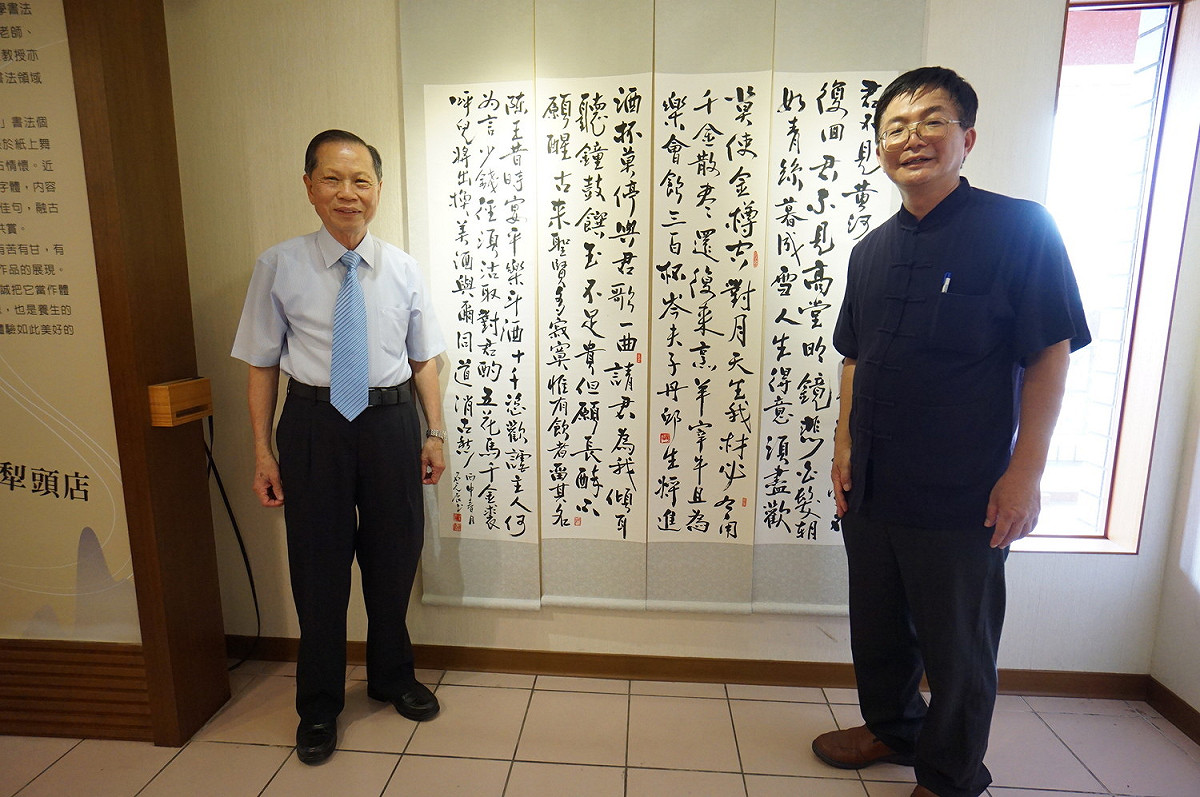 學書法
老師、
教授亦
書法領域
」書法個
於紙上舞
情懷。近
字體，內容
佳句，融古
共賞。
有苦有甘，有
作品的展現。
誠把它當作體
，也是養生的
體驗如此美好的
犁頭店
君不見黃河
復回君不見高堂明鏡悲白髮朝
如青絲暮成雪人生得意須盡歡
莫使金樽空對月天生我材必有用
千金散盡還復來烹羊宰牛且為
樂會飲三百杯岑夫子丹邱生將進
酒杯莫停與君歌一曲請君為我傾耳
聽鐘鼓饌玉不足貴但願長醉不
願醒古來聖賢多寂寞惟有飲者留其名
陳王昔時宴平樂斗酒十千恣歡謔主人何
為言少錢徑須沽取對君酌五花馬千金裘
呼兒將出換美酒與爾同道消古愁
丙申春月